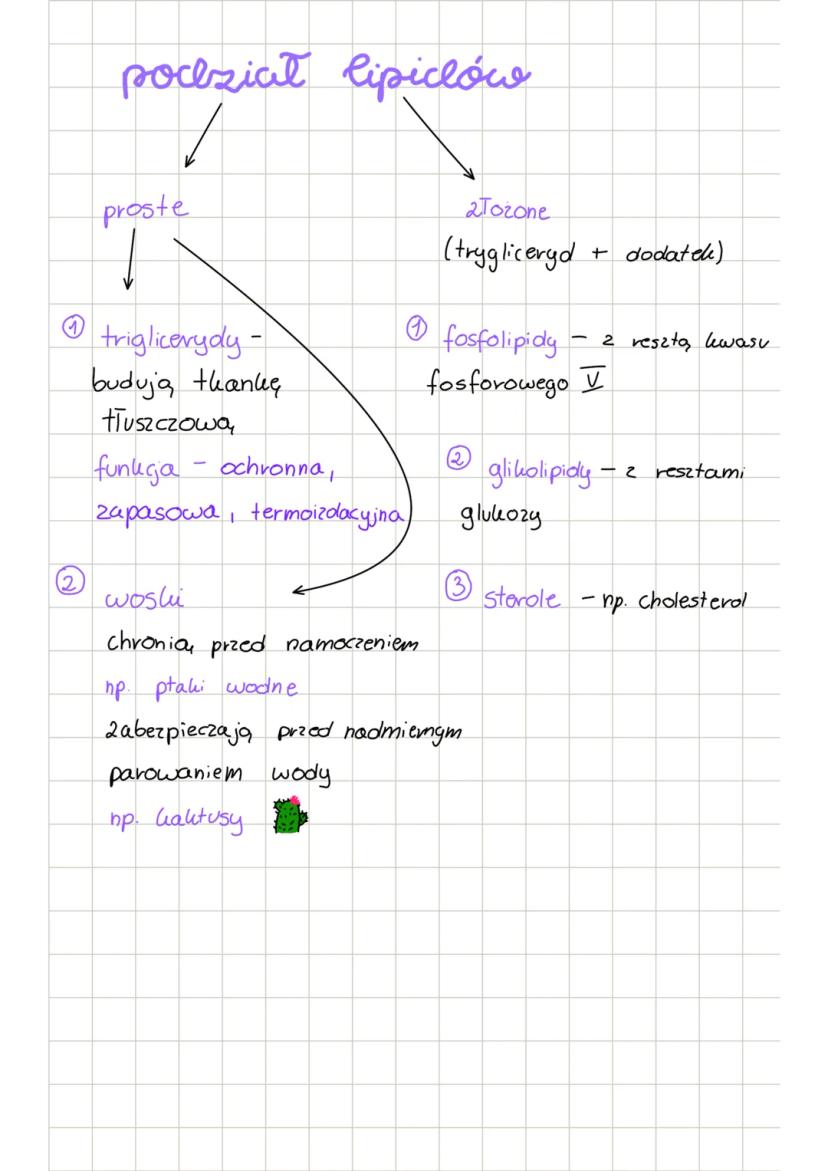 podział lipidów
proste
złożone
(trygliceryd + dodatek)
① triglicerydy -
budują tkankę
tłuszczową
funkcja - ochronna,
zapasowa, termoizolacyjna
② woski
chronią przed namoczeniem
np. ptaki wodne
zabezpieczają przed nadmiernym
parowaniem wody
np. kaktusy
① fosfolipidy - z resztą kwasu
fosforowego V
② glikolipidy - z resztami
glukozy
③ sterole - np. cholesterol